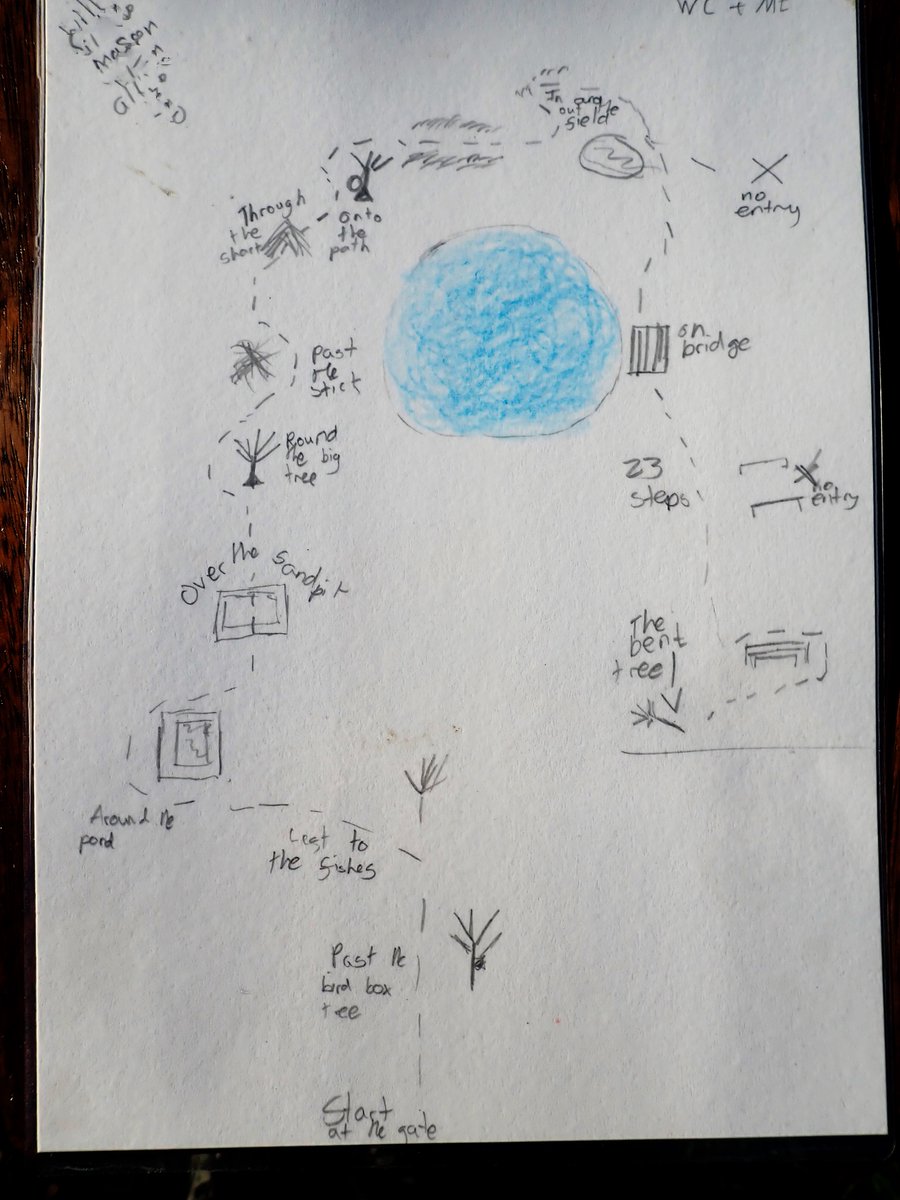 WC + ME
In and
out the
field
no
entry
Through
the
onto
the
path
on
bridge
Past
the
stick
Round
the big
tree
23
steps
no
entry
Over the sandpit
The
bent
tree
Around the
pond
Left to
the fishes
Past the
bird box
tree
Start
at the gate